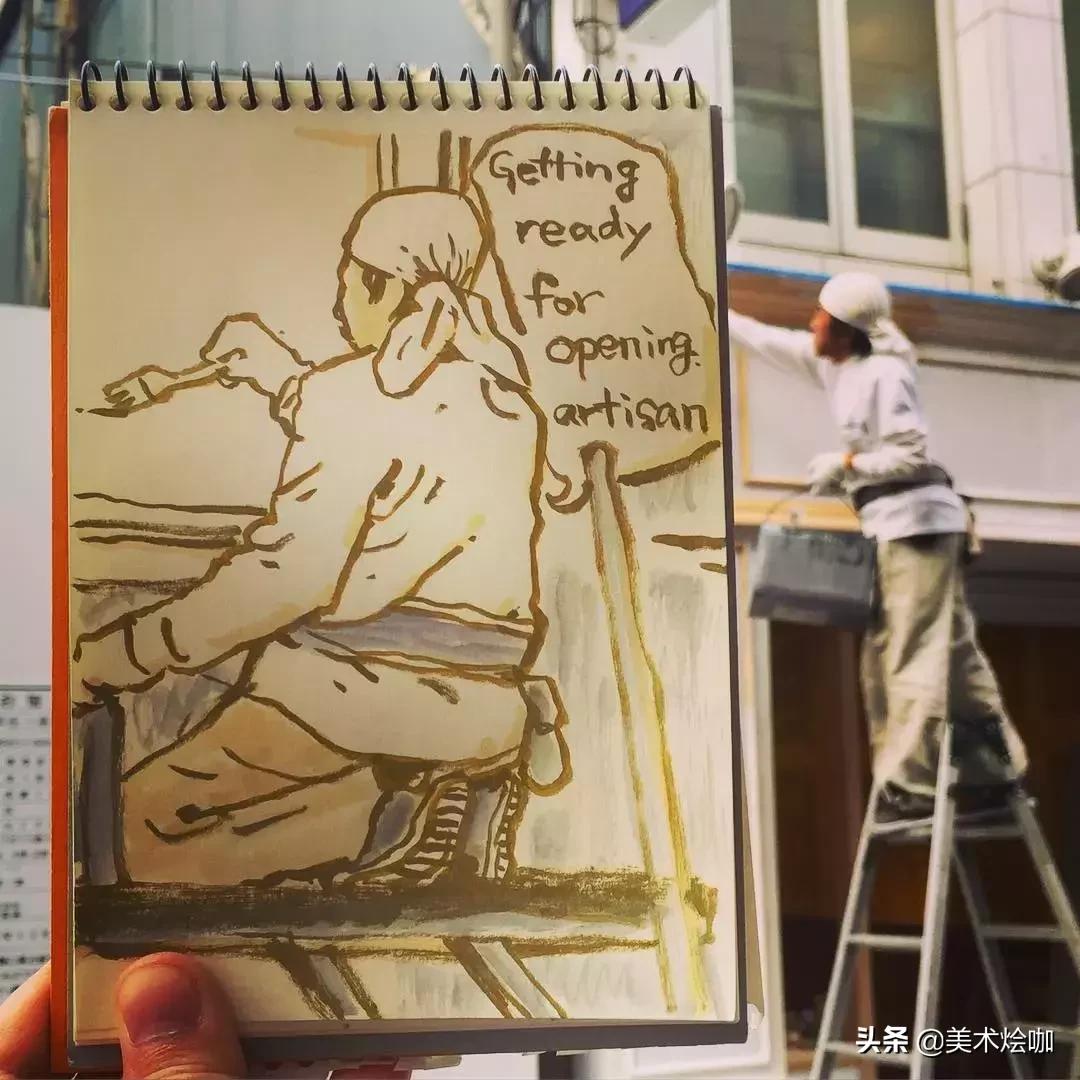 Getting
ready
for
opening.
artisan
头条 @美术烩咖